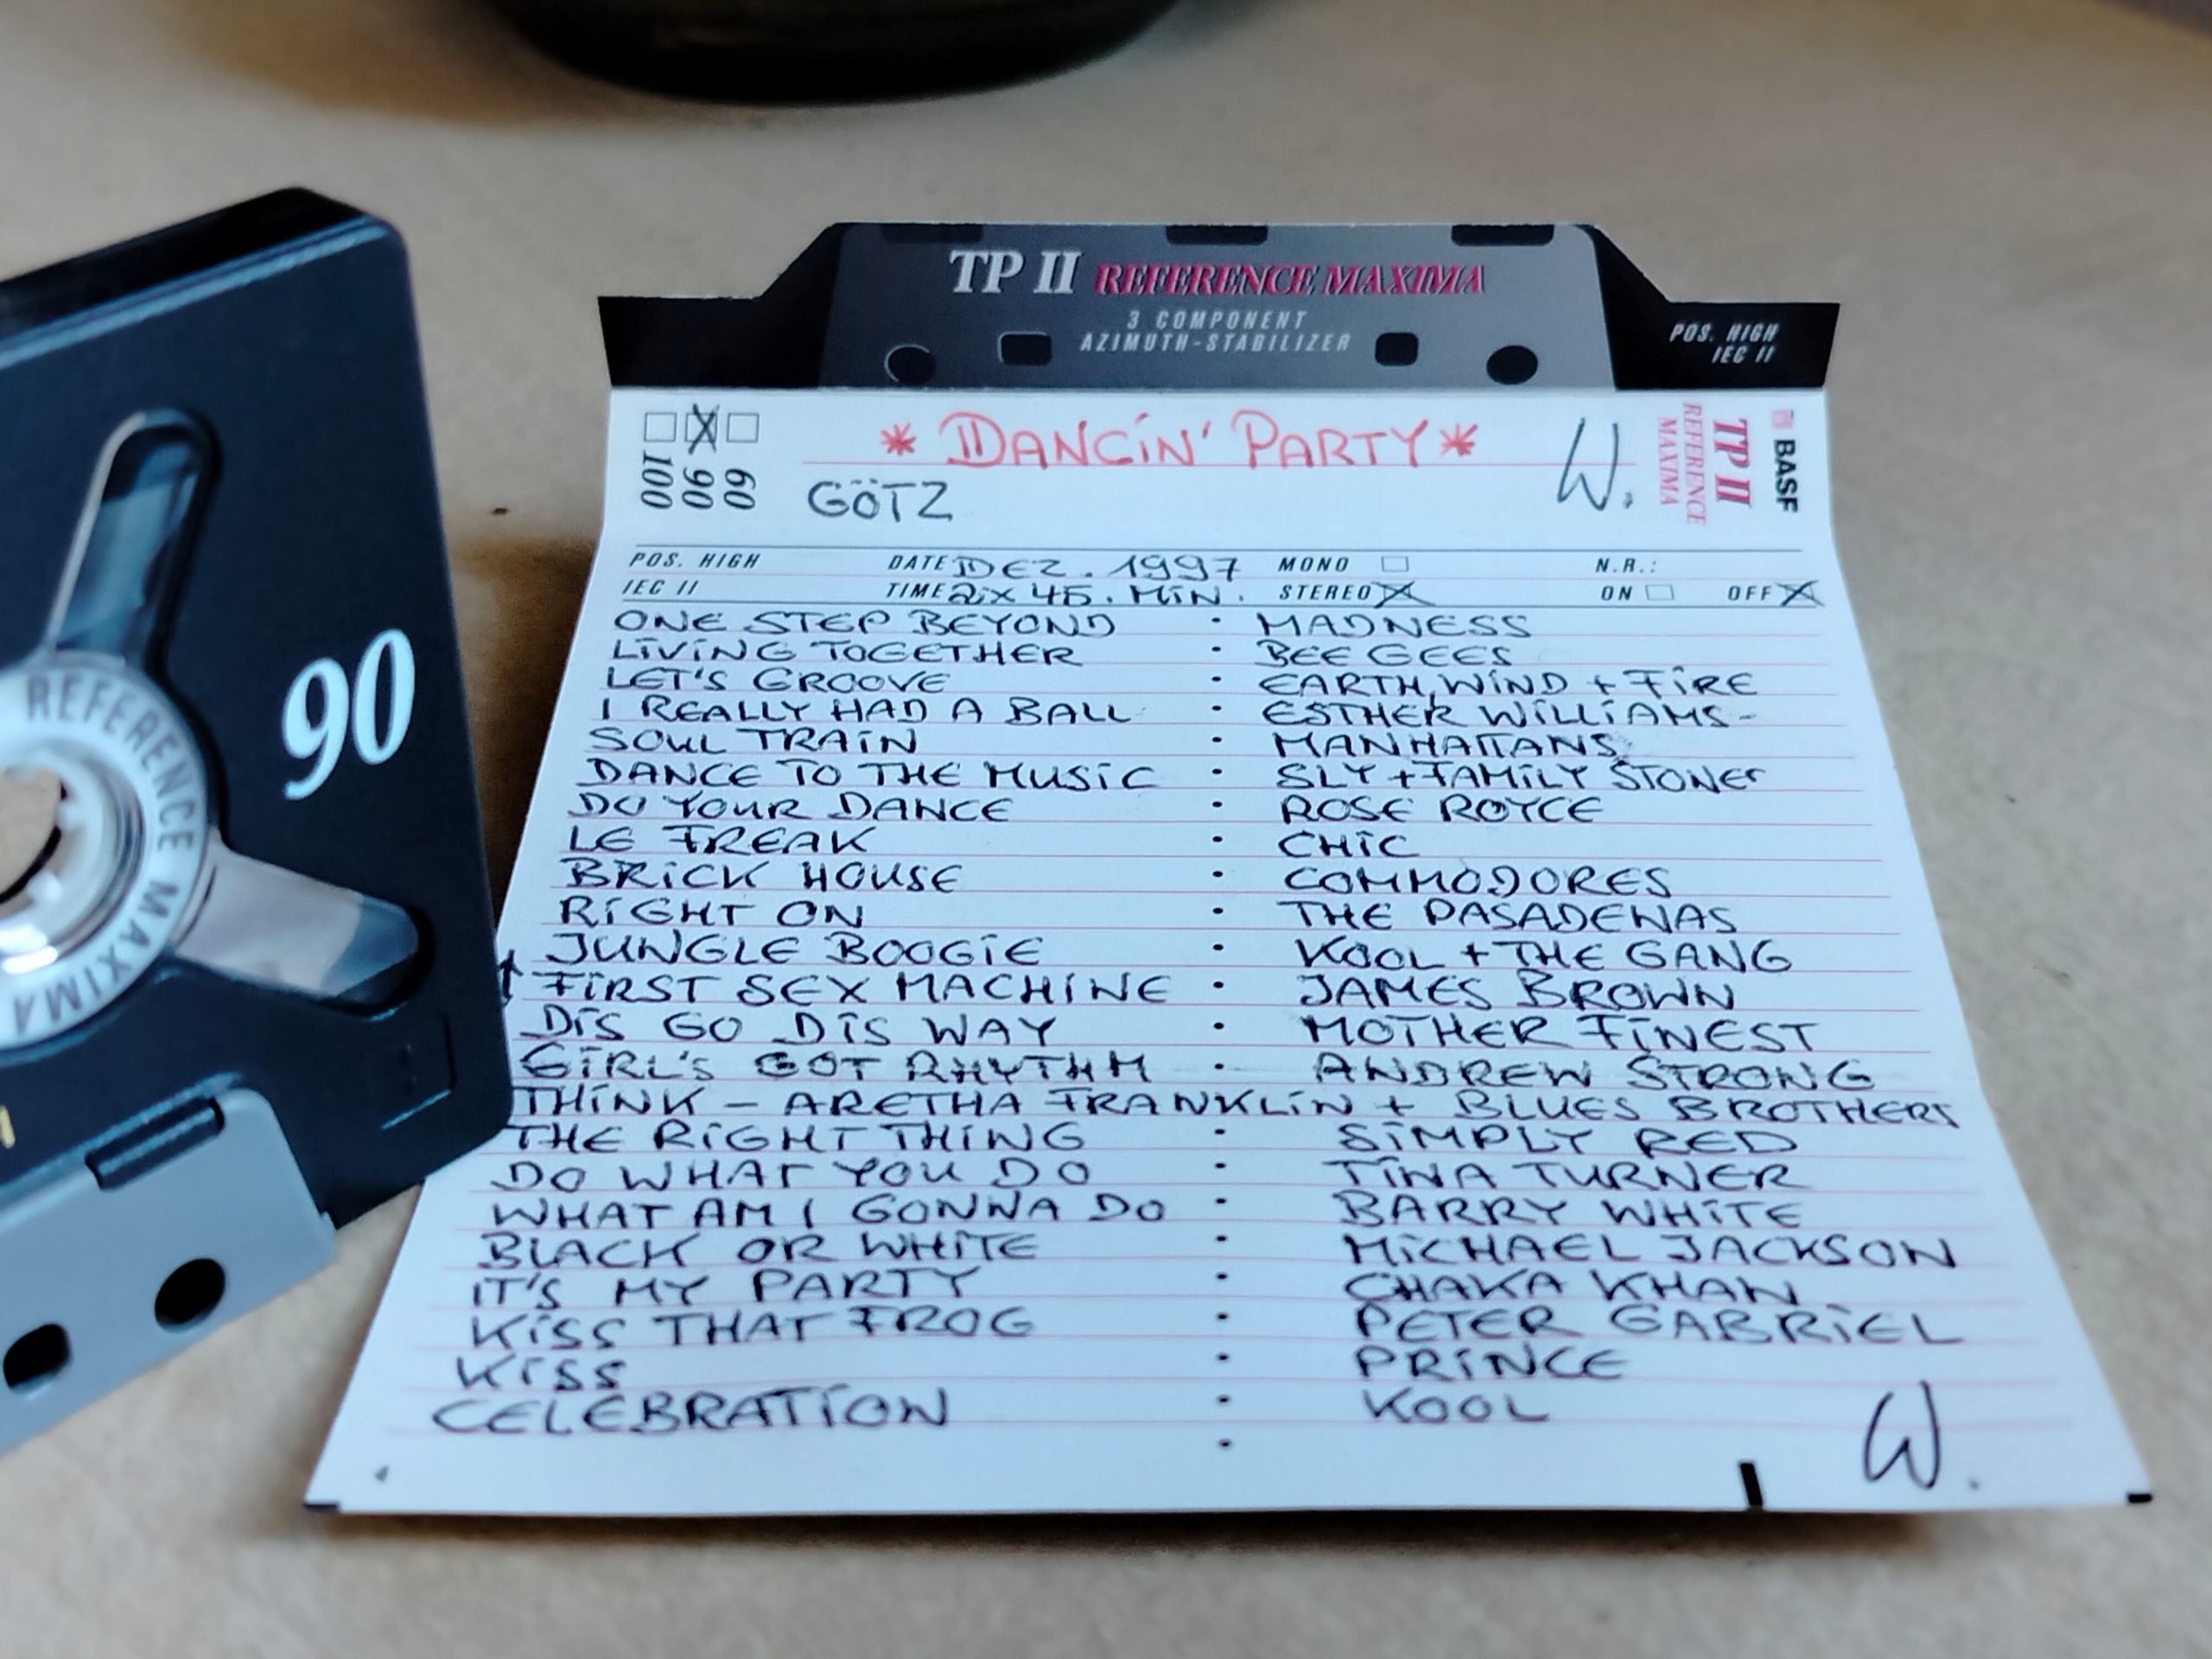 TP II REFERENCE MAXIMA
3 COMPONENT
AZIMUTH-STABILIZER
POS. HIGH
IEC II
* DANCIN' PARTY *
W.
GÖTZ
100
90
60
BASF
TP II
REFERENCE
MAXIMA
POS. HIGH DATE DEZ. 1997 MONO N.R.:
IEC II TIME 2x 45. MIN. STEREO ON OFF
ONE STEP BEYOND · MADNESS
LIVING TOGETHER · BEE GEES
LET'S GROOVE · EARTH, WIND + FIRE
I REALLY HAD A BALL · ESTHER WILLIAMS-
SOUL TRAIN · MANHATTANS
DANCE TO THE MUSIC · SLY + FAMILY STONE
DO YOUR DANCE · ROSE ROYCE
LE FREAK · CHIC
BRICK HOUSE · COMMODORES
RIGHT ON · THE PASADENAS
JUNGLE BOOGIE · KOOL + THE GANG
FIRST SEX MACHINE · JAMES BROWN
DIS GO DIS WAY · MOTHER FINEST
GIRL'S GOT RHYTHM · ANDREW STRONG
THINK - ARETHA FRANKLIN + BLUES BROTHERS
THE RIGHT THING · SIMPLY RED
DO WHAT YOU DO · TINA TURNER
WHAT AM I GONNA DO · BARRY WHITE
BLACK OR WHITE · MICHAEL JACKSON
IT'S MY PARTY · CHAKA KHAN
KISS THAT FROG · PETER GABRIEL
KISS · PRINCE
CELEBRATION · KOOL
W.
4
90
REFERENCE MAXIMA